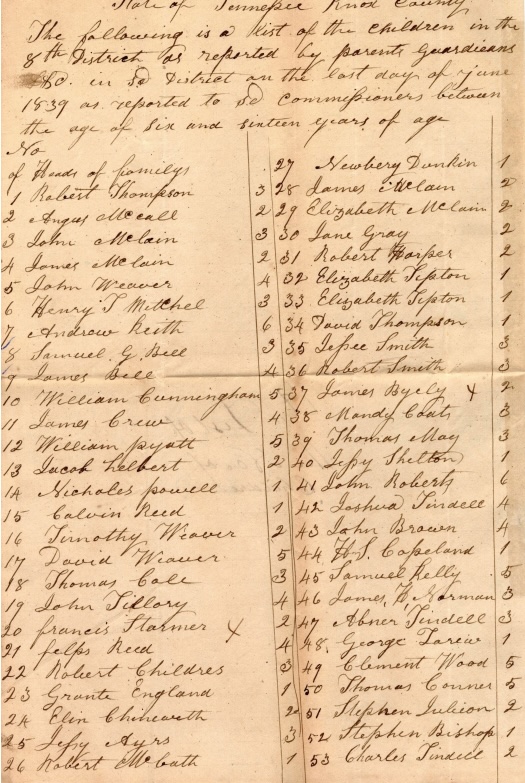 State of Tennessee Knox County
The following is a list of the children in the
8th District as reported by parents Guardians
&C. in sd District on the last day of June
1839 as reported to sd commissioners between
the age of six and sixteen years of age
No
of Heads of familys
1 Robert Thompson 3
2 Angus McCall 2
3 John McLain 3
4 James McLain 2
5 John Weaver 4
6 Henry T Mitchel 3
7 Andrew Keith 6
8 Samuel G. Bell 3
9 James Bell 4
10 William Cunningham 5
11 James Crew 4
12 William pyatt 5
13 Jacob helbert 2
14 Nicholas powell 1
15 Calvin Reed 1
16 Timothy Weaver 2
17 David Weaver 5
18 Thomas Cole 3
19 John Tillory 4
20 francis Starmer x 2
21 felps Reed 4
22 Robert Childres 3
23 Grante England 1
24 Elin Chineworth 2
25 Jessy Ayrs 3
26 Robert McCath 1
27 Newbery Dunkin 1
28 James McLain 2
29 Elizabeth McLain 2
30 Jane Gray 2
31 Robert Harper 2
32 Elizabeth Tipton 1
33 Elizabeth Tipton 1
34 David Thompson 1
35 Jessee Smith 3
36 Robert Smith 3
37 James Byely x 2
38 Mandy Coats 3
39 Thomas May 3
40 Jessy Shelton 1
41 John Roberts 6
42 Joshua Tindell 4
43 John Brown 4
44 H.S. Copeland 1
45 Samuel Kelly 5
46 James Norman 3
47 Abner Tindell 3
48 George 1
49 Clement Wood 5
50 Thomas Conner 5
51 Stephen Julieon 2
52 Stephen Bishop 1
53 Charles Tindell 2